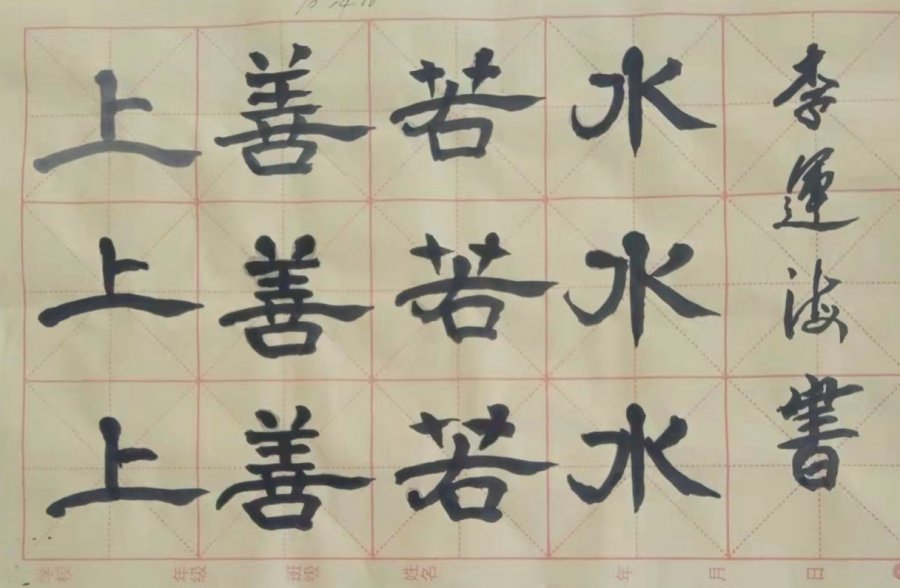 上善若水
上善若水
上善若水
李運海書
学校 年级 班级 姓名 年 月 日